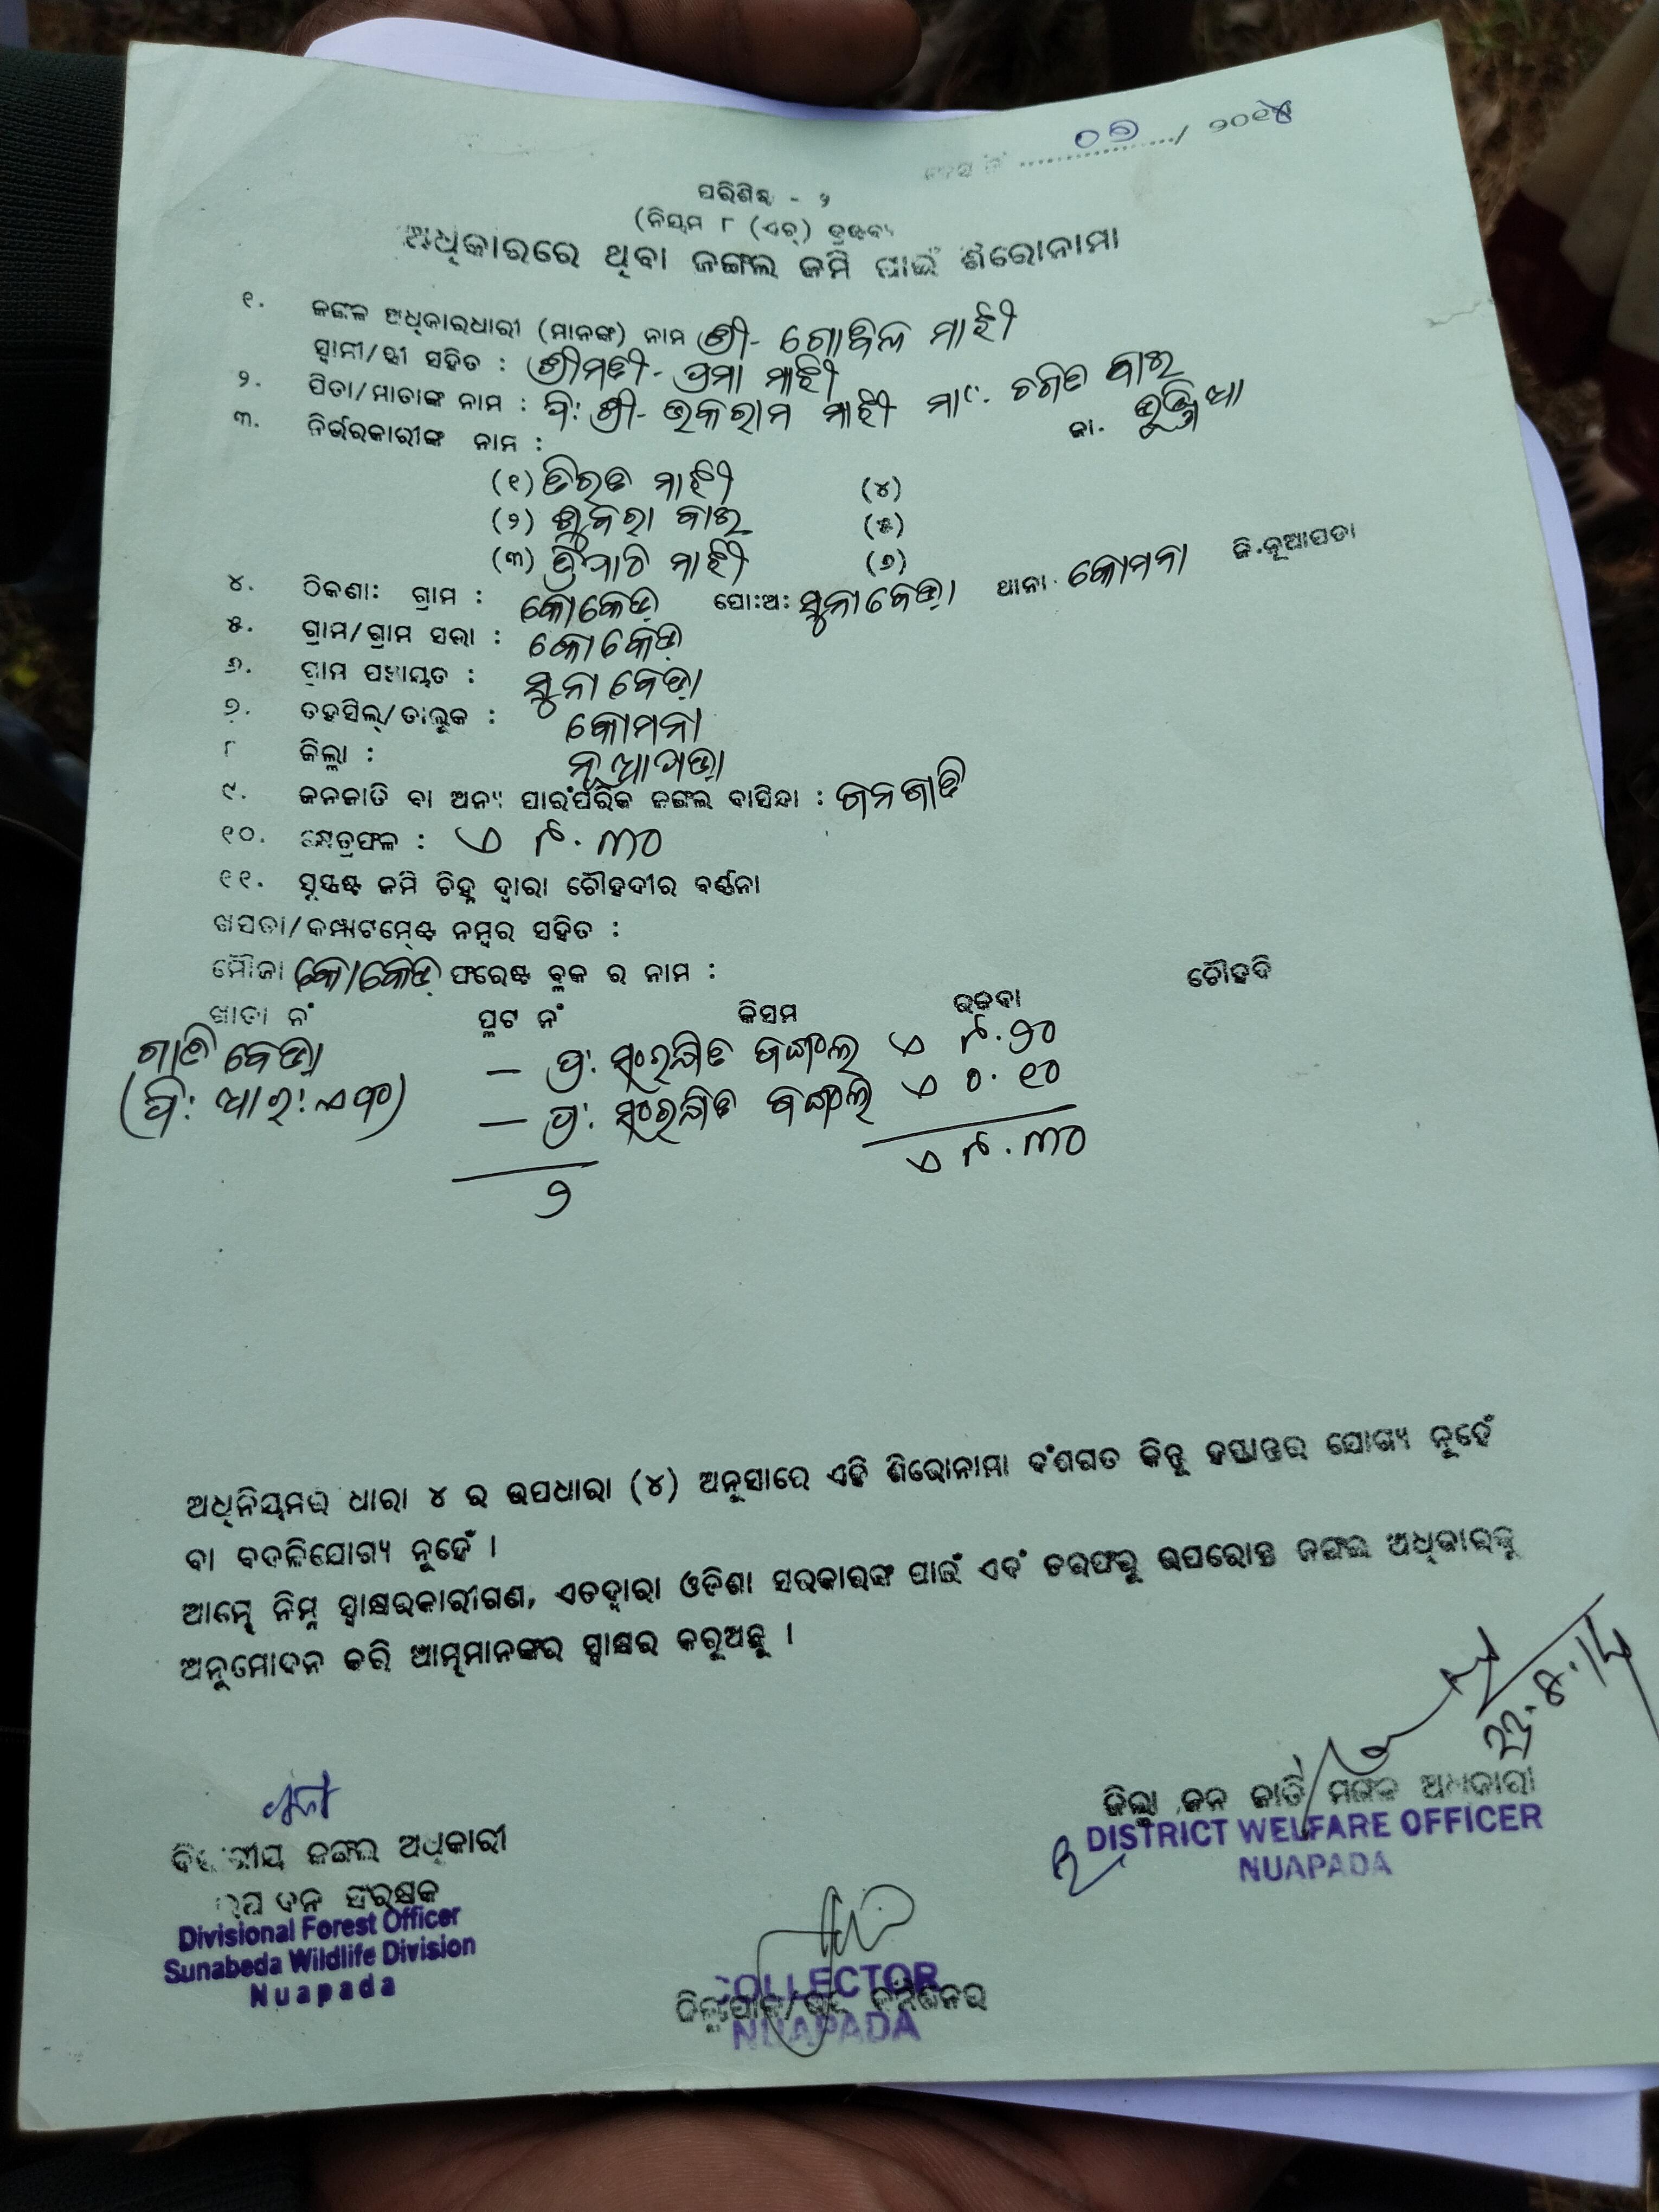 କେସ ନଂ ............/ ୨୦୧୪
୦୭
ପରିଶିଷ୍ଟ - ୨
(ନିୟମ ୮ (ଏଚ୍) ଦ୍ରଷ୍ଟବ୍ୟ
ଅଧିକାରରେ ଥିବା ଜଙ୍ଗଲ ଜମି ପାଇଁ ଶିରୋନାମା
୧. ଜଙ୍ଗଳ ଅଧିକାରଧାରୀ (ମାନଙ୍କ) ନାମ ଶ୍ରୀ- ଗୋବିଲ ମାଝୀ
ସ୍ୱାମୀ/ସ୍ତ୍ରୀ ସହିତ : ଶ୍ରୀମତୀ- ପ୍ରମା ମାଝୀ
୨. ପିତା/ମାତାଙ୍କ ନାମ : ପି: ଶ୍ରୀ- ଭକରାମ ମାଝୀ ମା- ଚଇତ ବାଇ
୩. ନିର୍ଭରକାରୀଙ୍କ ନାମ : ଜା. ଭୁଞ୍ଜିଆ
(୧) ତିରତ ମାଝୀ (୪)
(୨) ଶୁକରା ବାଇ (୫)
(୩) ମାଝୀ (୬)
୪. ଠିକଣା: ଗ୍ରାମ : କୋକେଡ଼ା ପୋ:ଅ: ସୁନାବେଡ଼ା ଥାନା. କୋମନା ଜି.ନୂଆପଡା
୫. ଗ୍ରାମ/ଗ୍ରାମ ସଭା : କୋକେଡ଼ା
୬. ଗ୍ରାମ ପଞ୍ଚାୟତ : ସୁନାବେଡ଼ା
୭. ତହସିଲ୍/ତାଲୁକ : କୋମନା
୮ ଜିଲ୍ଲା : ନୂଆପଡ଼ା
୯. ଜନଜାତି ବା ଅନ୍ୟ ପାରଂପରିକ ଜଙ୍ଗଲ ବାସିନ୍ଦା : ଜନଜାତି
୧୦. କ୍ଷେତ୍ରଫଳ : ଏ ୮.୩୦
୧୧. ସୁସ୍ପଷ୍ଟ ଜମି ଚିହ୍ନ ଦ୍ୱାରା ଚୌହଦୀର ବର୍ଣ୍ଣନା
ଖସଡା/କମ୍ପାଟମେଣ୍ଟ ନମ୍ବର ସହିତ :
ମୌଜା କୋକେଡ଼ା ଫରେଷ୍ଟ ବ୍ଲକ ର ନାମ :
ଖାତା ନଂ ପ୍ଲଟ ନଂ କିସମ ରକବା ଚୌହଦି
ଗାତିବେଡ଼ା — ପ୍ର: ସଂରକ୍ଷିତ ଜଙ୍ଗଲ ଏ ୮.୨୦
(ପି: ଆର: ଏଫ) — ପ୍ର: ସଂରକ୍ଷିତ ଜଙ୍ଗଲ ଏ ୦.୧୦
୨ ଏ ୮.୩୦
ଅଧିନିୟମର ଧାରା ୪ ର ଉପଧାରା (୪) ଅନୁସାରେ ଏହି ଶିରୋନାମା ବଂଶଗତ କିନ୍ତୁ ହସ୍ତାନ୍ତର ଯୋଗ୍ୟ ନୁହେଁ
ବା ବଦଳିଯୋଗ୍ୟ ନୁହେଁ ।
ଆମ୍ଭେ ନିମ୍ନ ସ୍ୱାକ୍ଷରକାରୀଗଣ, ଏତଦ୍ୱାରା ଓଡିଶା ସରକାରଙ୍କ ପାଇଁ ଏବଂ ତରଫରୁ ଉପରୋକ୍ତ ଜଙ୍ଗଲ ଅଧିକାରକୁ
ଅନୁମୋଦନ କରି ଆମ୍ଭମାନଙ୍କର ସ୍ୱାକ୍ଷର କରୁଅଛୁ ।
ଜିଲ୍ଲା ଜନ ଜାତି ମଙ୍ଗଳ ଅଧିକାରୀ
DISTRICT WELFARE OFFICER
NUAPADA
ବିଭାଗୀୟ ଜଙ୍ଗଲ ଅଧିକାରୀ
ଉପ ବନ ସଂରକ୍ଷକ
Divisional Forest Officer
Sunabeda Wildlife Division
Nuapada
COLLECTOR
ଜିଲ୍ଲାପାଳ/
NUAPADA